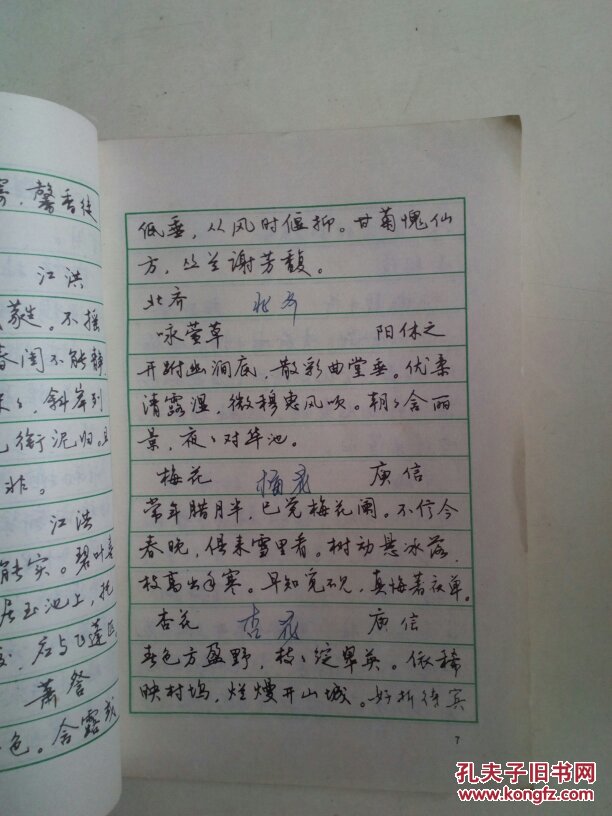 寄，馨香徒
江洪
不摇
春闺不能静
斜岸列
衔泥归。且
非。
江洪
能实。碧叶喜
居玉池上，托
若与飞蓬
萧詧
色。含露或
低垂，从风时偃抑。甘菊愧仙
方，丛兰谢芳馥。
北齐 北齐
咏萱草 阳休之
开跗幽涧底，散彩曲堂垂。优柔
清露湿，微穆惠风吹。朝々含丽
景，夜々对华池。
梅花 梅花 庾信
常年腊月半，已觉梅花阑。不信今
春晚，俱来雪里看。树动悬冰落，
枝高出手寒。早知觅不见，真悔著衣单。
杏花 杏花 庾信
春色方盈野，枝々绽翠英。依稀
映村坞，烂熳开山城。好折待宾
7
孔夫子旧书网
www.kongfz.com